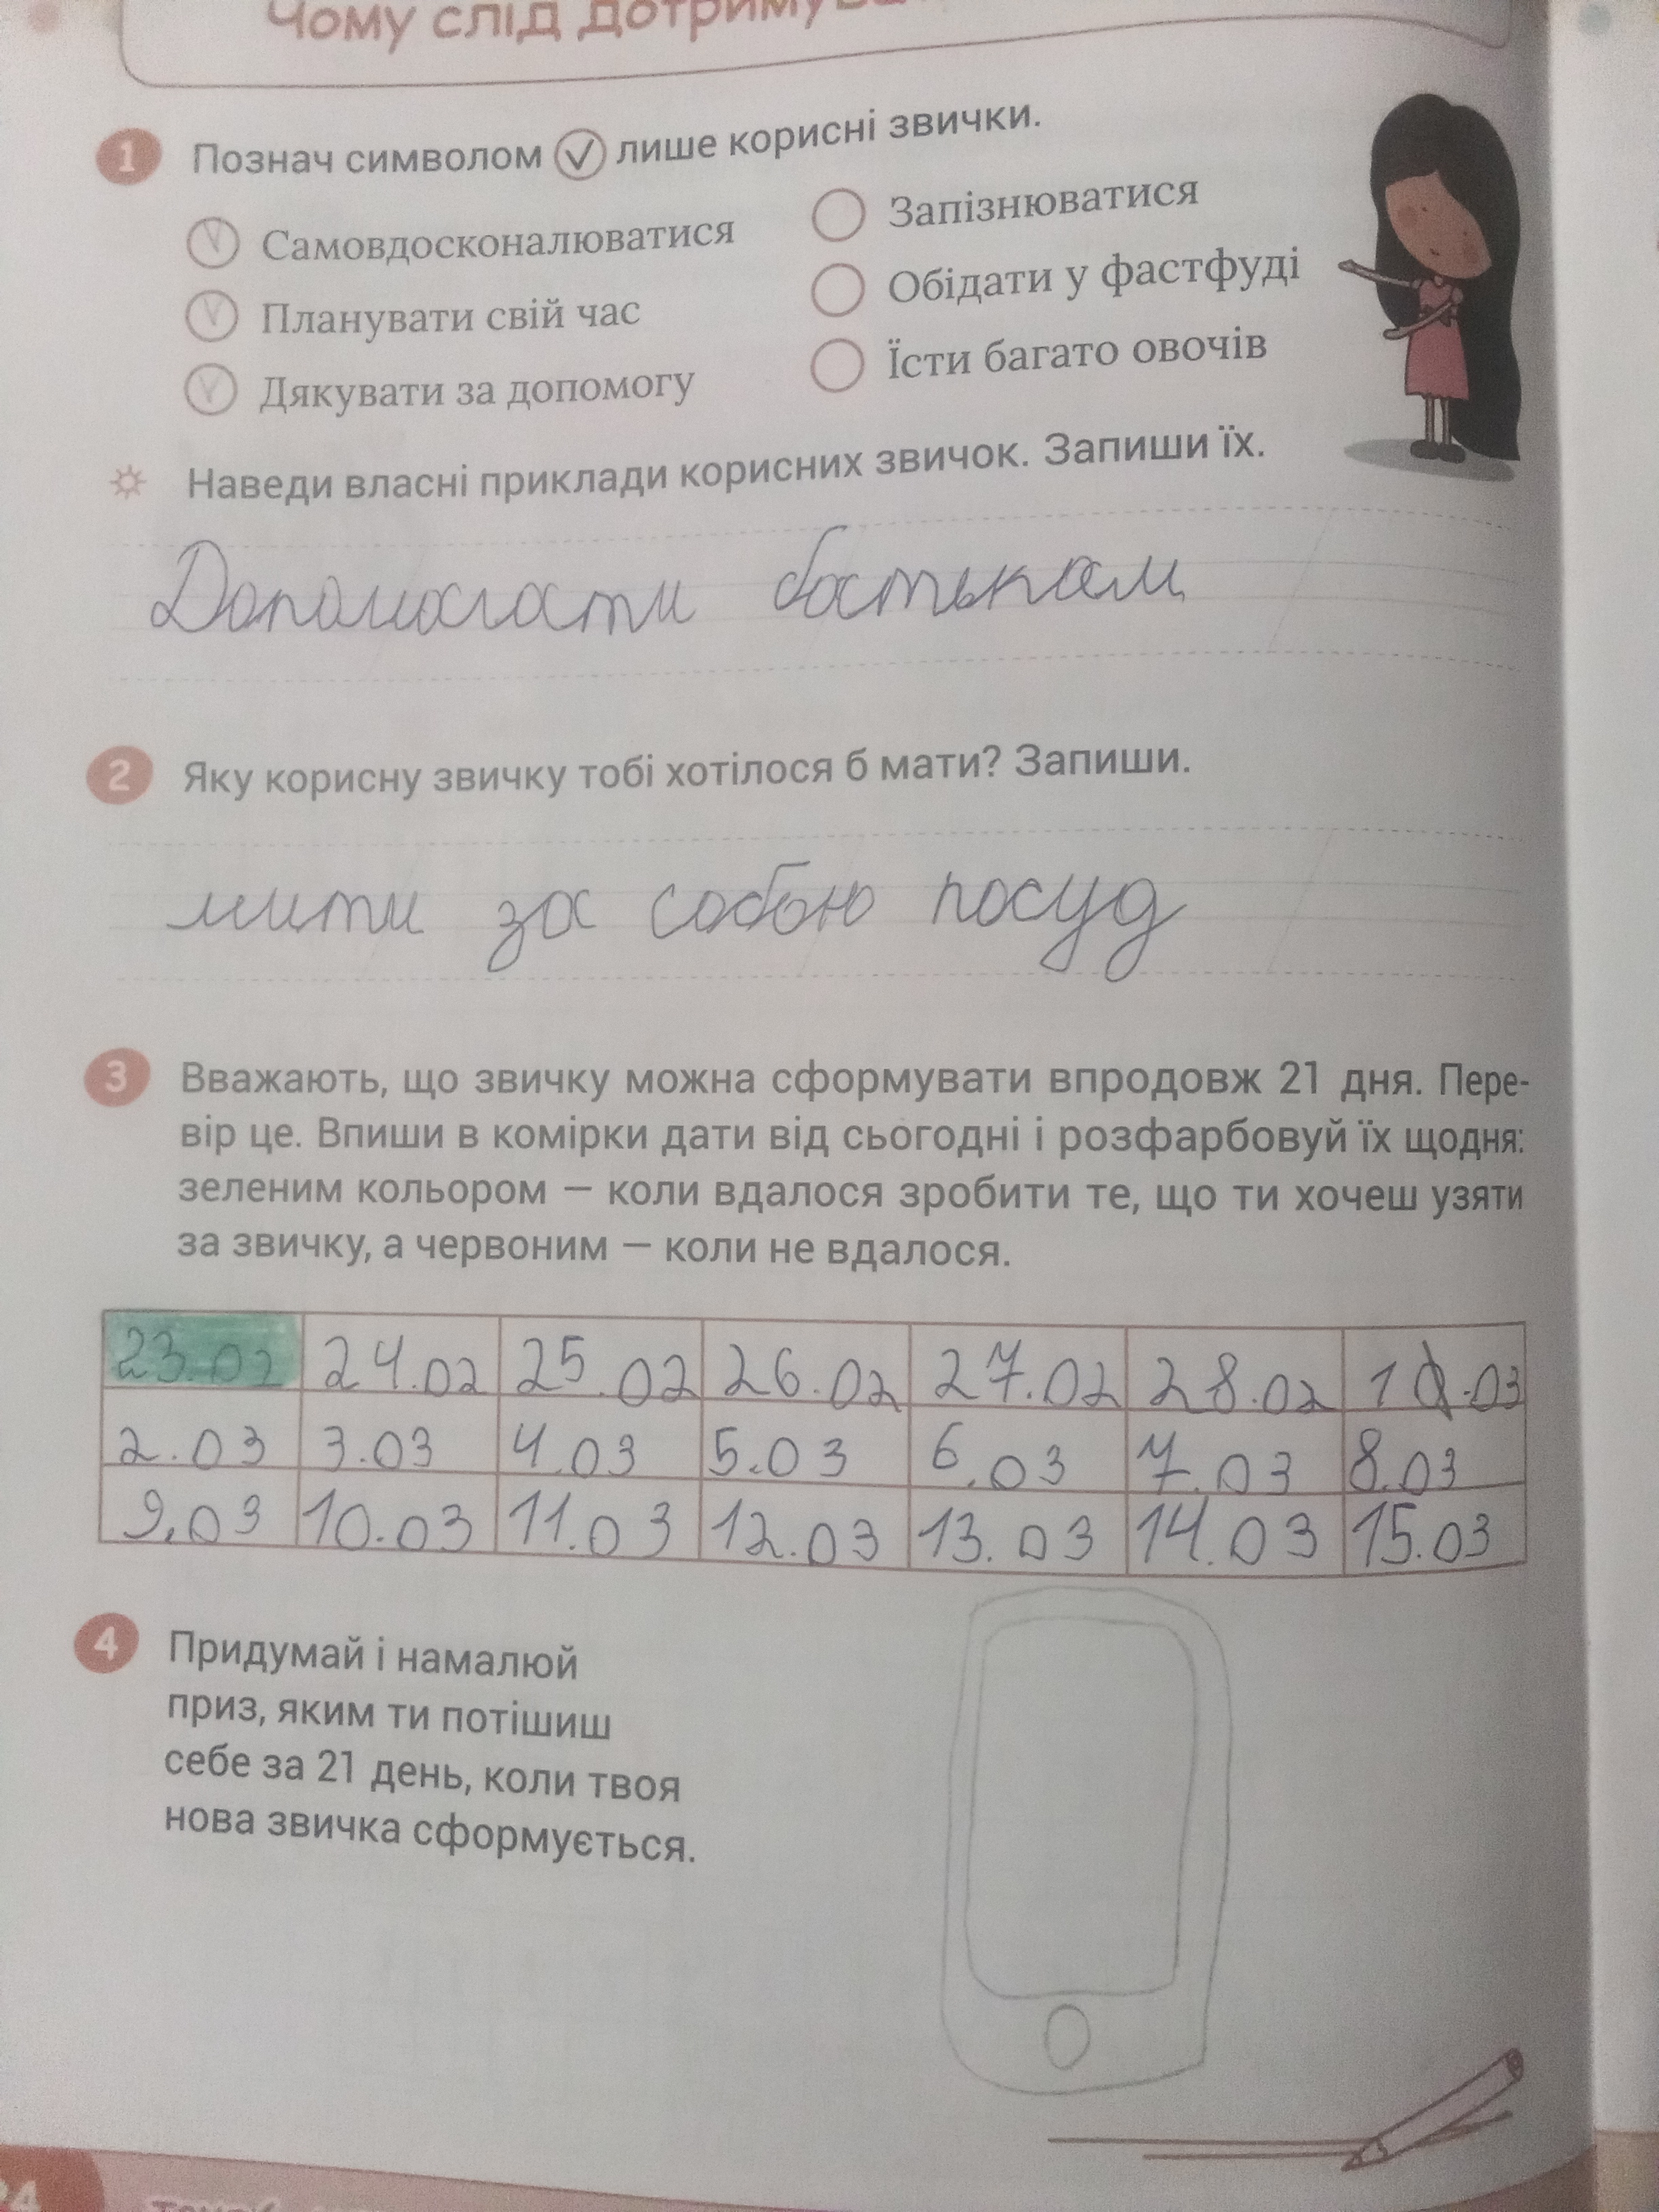 Чому слід дотримува
1 Познач символом лише корисні звички.
Самовдосконалюватися
Планувати свій час
Дякувати за допомогу
Запізнюватися
Обідати у фастфуді
Їсти багато овочів
Наведи власні приклади корисних звичок. Запиши їх.
Допомагати батькам
2 Яку корисну звичку тобі хотілося б мати? Запиши.
мити за собою посуд
3 Вважають, що звичку можна сформувати впродовж 21 дня. Пере-
вір це. Впиши в комірки дати від сьогодні і розфарбовуй їх щодня:
зеленим кольором — коли вдалося зробити те, що ти хочеш узяти
за звичку, а червоним — коли не вдалося.
23.02 24.02 25.02 26.02 27.02 28.02 1.03
2.03 3.03 4.03 5.03 6.03 7.03 8.03
9.03 10.03 11.03 12.03 13.03 14.03 15.03
4 Придумай і намалюй
приз, яким ти потішиш
себе за 21 день, коли твоя
нова звичка сформується.